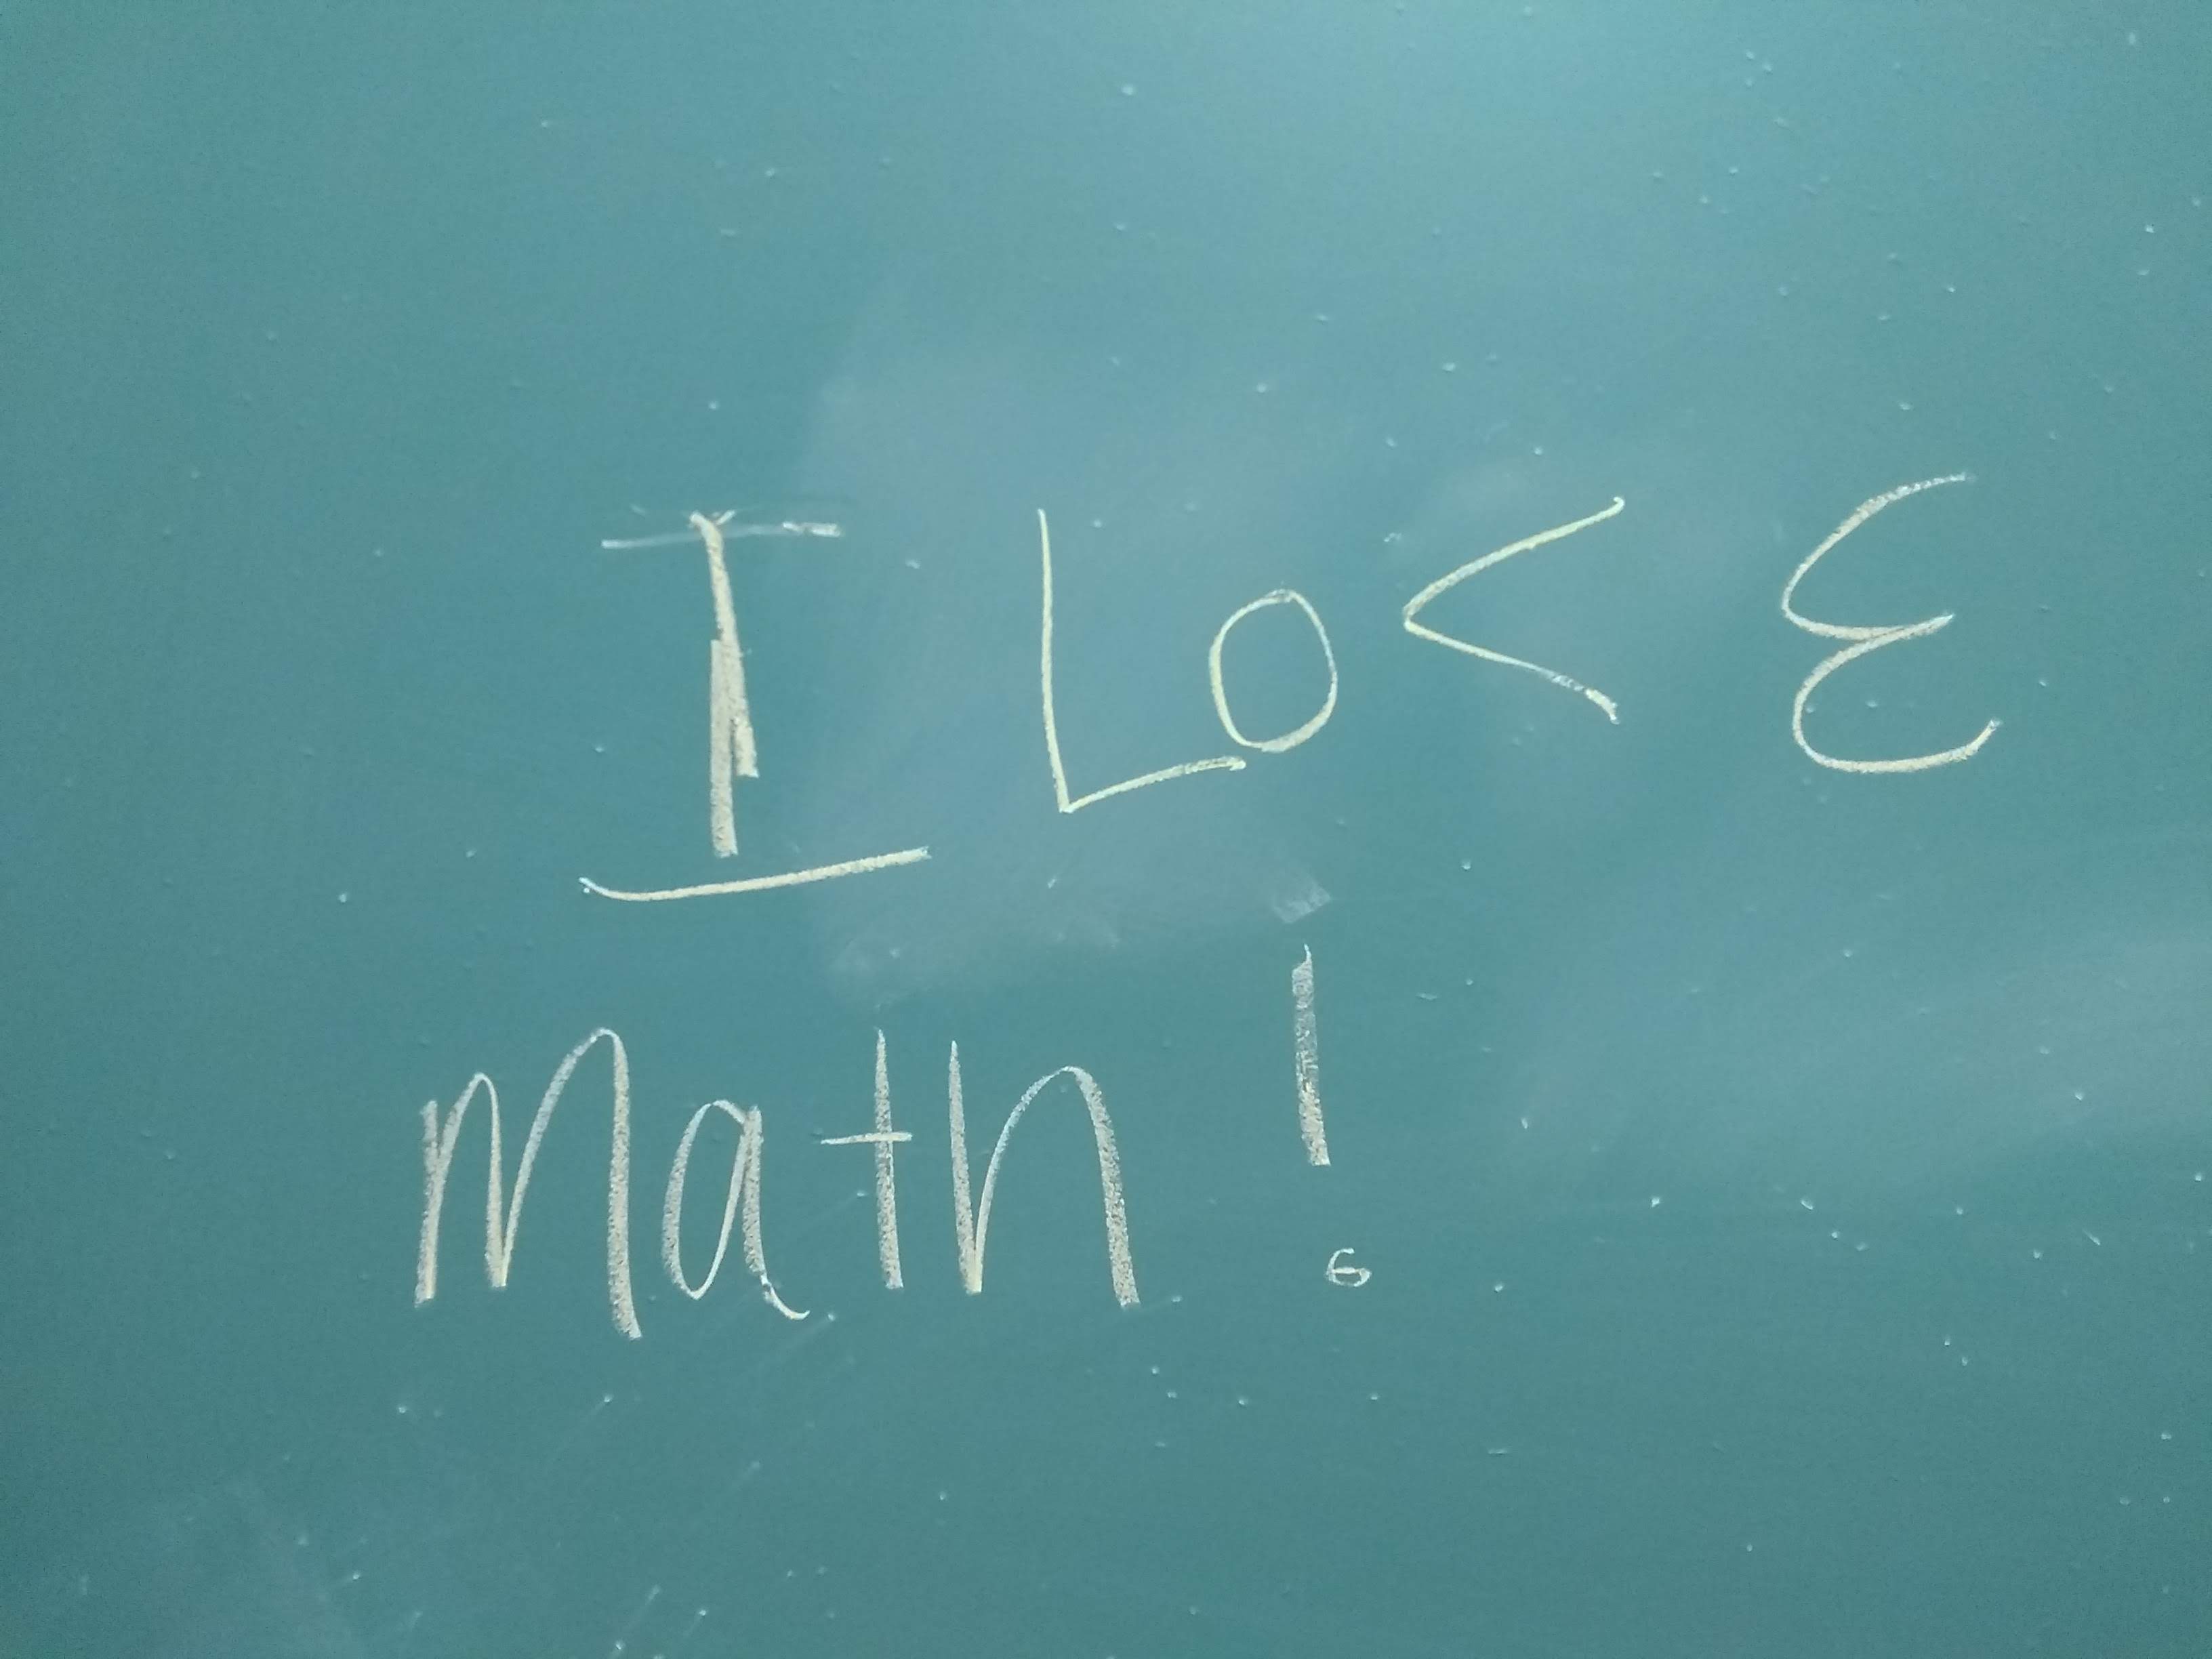 I Lo< ε
Math!